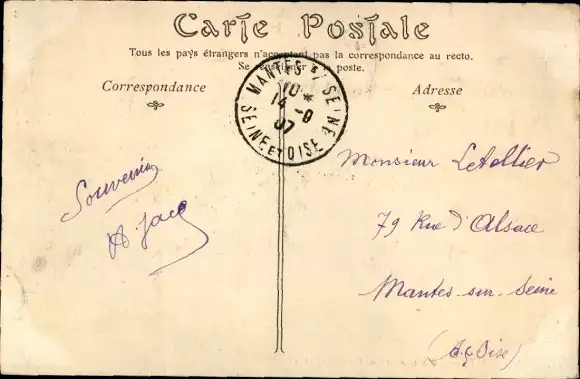 Carte Postale
Tous les pays étrangers n'acceptent pas la correspondance au recto.
Se renseigner à la poste.
Correspondance
Adresse
MANTES S/ SEINE
10 *
14 -9
07
SEINE ET OISE
Souvenir
A Jacq
Monsieur Letellier
79 Rue d'Alsace
Mantes-sur-Seine
(S & Oise)